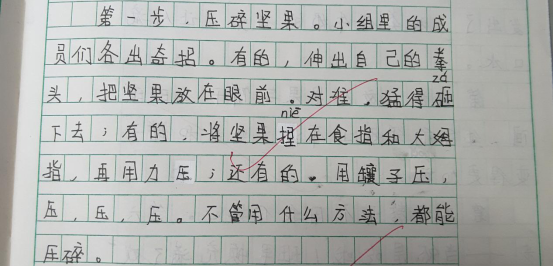 第一步，压碎坚果。小组里的成
员们各出奇招。有的，伸出自己的拳
头，把坚果放在眼前。对准，猛得砸zá
下去；有的，将坚果捏niē在食指和大拇
指，再用力压；还有的。用镶子压，
压，压，压。不管用什么方法，都能
压碎。